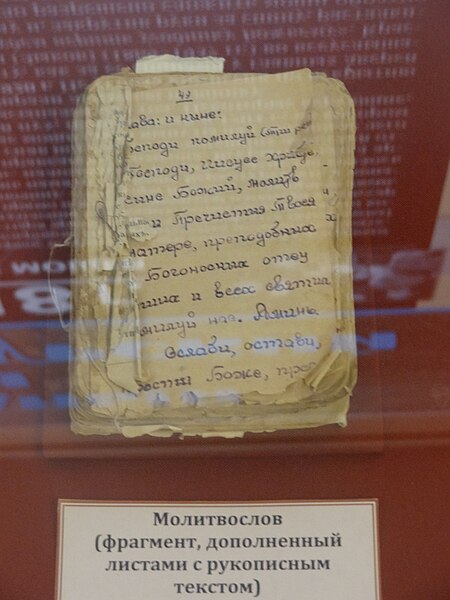 49
ава: и ныне:
осподи помилуй
Господи, Исусе
сыне Божий, молитв
и Пречистыя Твоея
матере, преподобных
Богоносных отец
наших и всех святых
помилуй нас. Аминь.
Ослаби, остави,
рости Боже, про
Молитвослов
(фрагмент, дополненный
листами с рукописным
текстом)